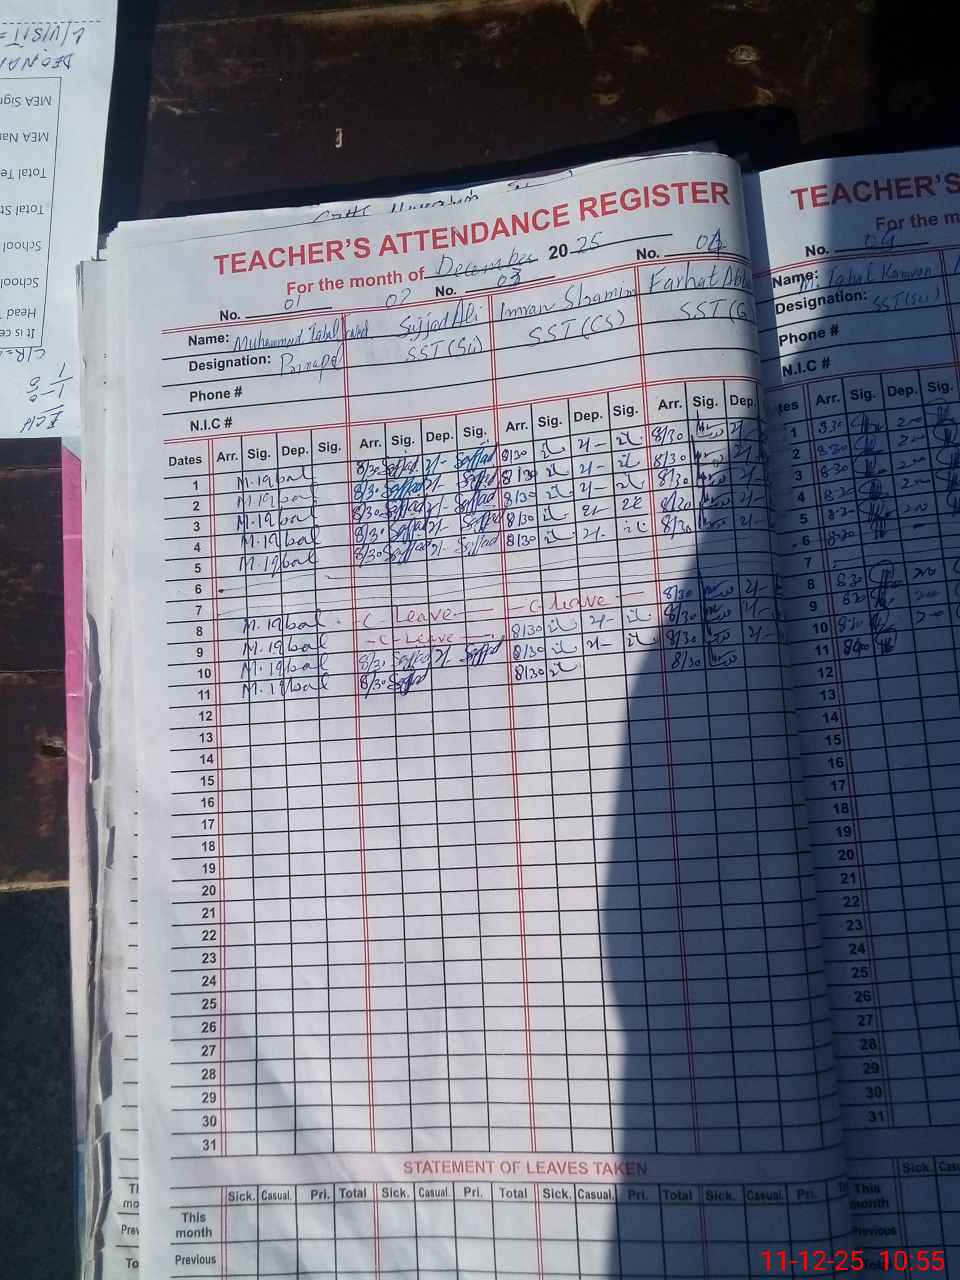 TEACHER'S ATTENDANCE REGISTER
For the month of December 2025
No. 01 02 No. 03 No. 04
Name: Muhammad Iqbal Sajjad Ali Imran Shamim Farhat Abb
Designation: SST (Sci) SST (CS) SST (G
Phone #
N.I.C #
Dates Arr. Sig. Dep. Sig. Arr. Sig. Dep. Sig. Arr. Sig. Dep. Sig. Arr. Sig. Dep.
1 M.iqbal 8/30 Sajjad 2/- Sajjad 8/30 2/- 8/30 2/-
2 M.iqbal 8/30 Sajjad 2/- Sajjad 8/30 2/- 8/30 2/-
3 M.iqbal 8/30 Sajjad 2/- Sajjad 8/30 2/- 8/30 2/-
4 M.iqbal 8/30 Sajjad 2/- Sajjad 8/30 2/- 8/30 2/-
5 M.iqbal 8/30 Sajjad 2/- Sajjad 8/30 2/- 8/30 2/-
6
7
8 M.iqbal - C - Leave - - C - Leave - 8/30 2/-
9 M.iqbal - C - Leave - 8/30 2/- 8/30 2/-
10 M.iqbal 8/30 Sajjad 2/- Sajjad 8/30 2/- 8/30 2/-
11 M.iqbal 8/30 Sajjad 8/30 8/30
12
13
14
15
16
17
18
19
20
21
22
23
24
25
26
27
28
29
30
31
STATEMENT OF LEAVES TAKEN
Sick. Casual. Pri. Total Sick. Casual. Pri. Total Sick. Casual. Pri. Total Sick. Casual. Pri.
This month
Previous
TEACHER'S
For the m
No. 04
Name: M. Iqbal Kamran
Designation: SST (Sci)
Phone #
N.I.C #
Arr. Sig. Dep. Sig.
1 830 200
2 830 200
3 830 200
4 820 200
5 820 200
6 820
7
8 830 200
9 820 200
10 830 200
11 800
12
13
14
15
16
17
18
19
20
21
22
23
24
25
26
27
28
29
30
31
Sick.
This month
Previous
MEA Sign
MEA Nam
Total Te
Total St
School
School
Head
It is ce
11-12-25 10:55